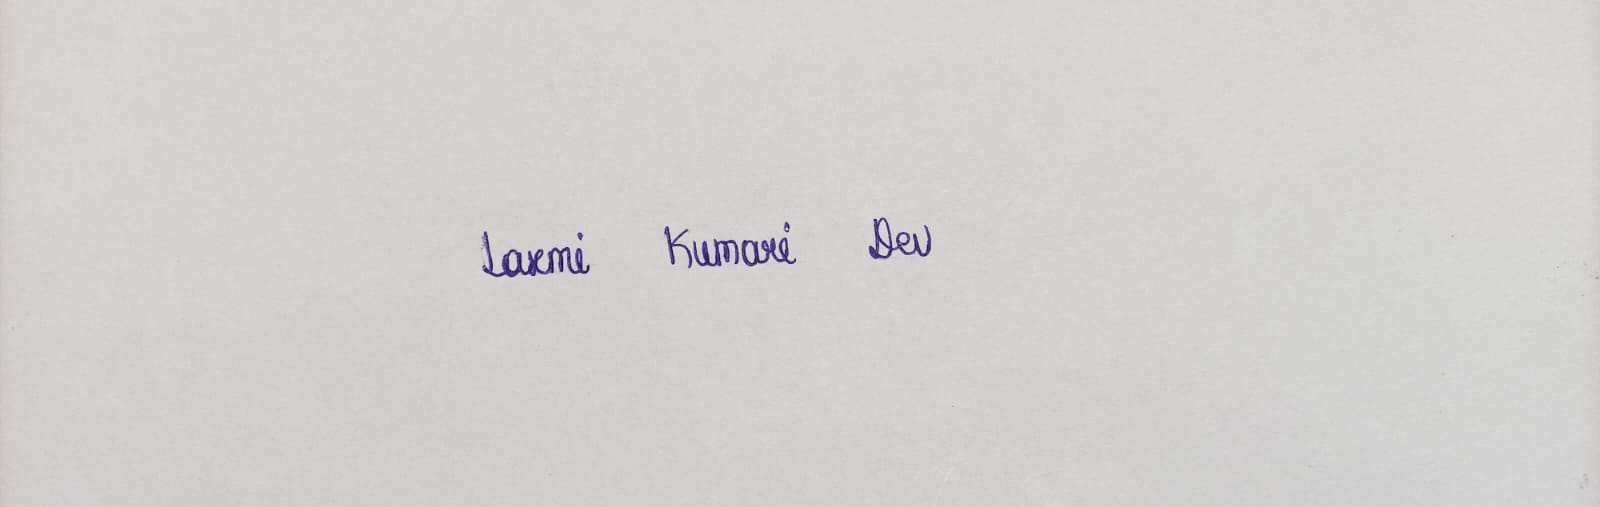 Laxmi Kumari Dev